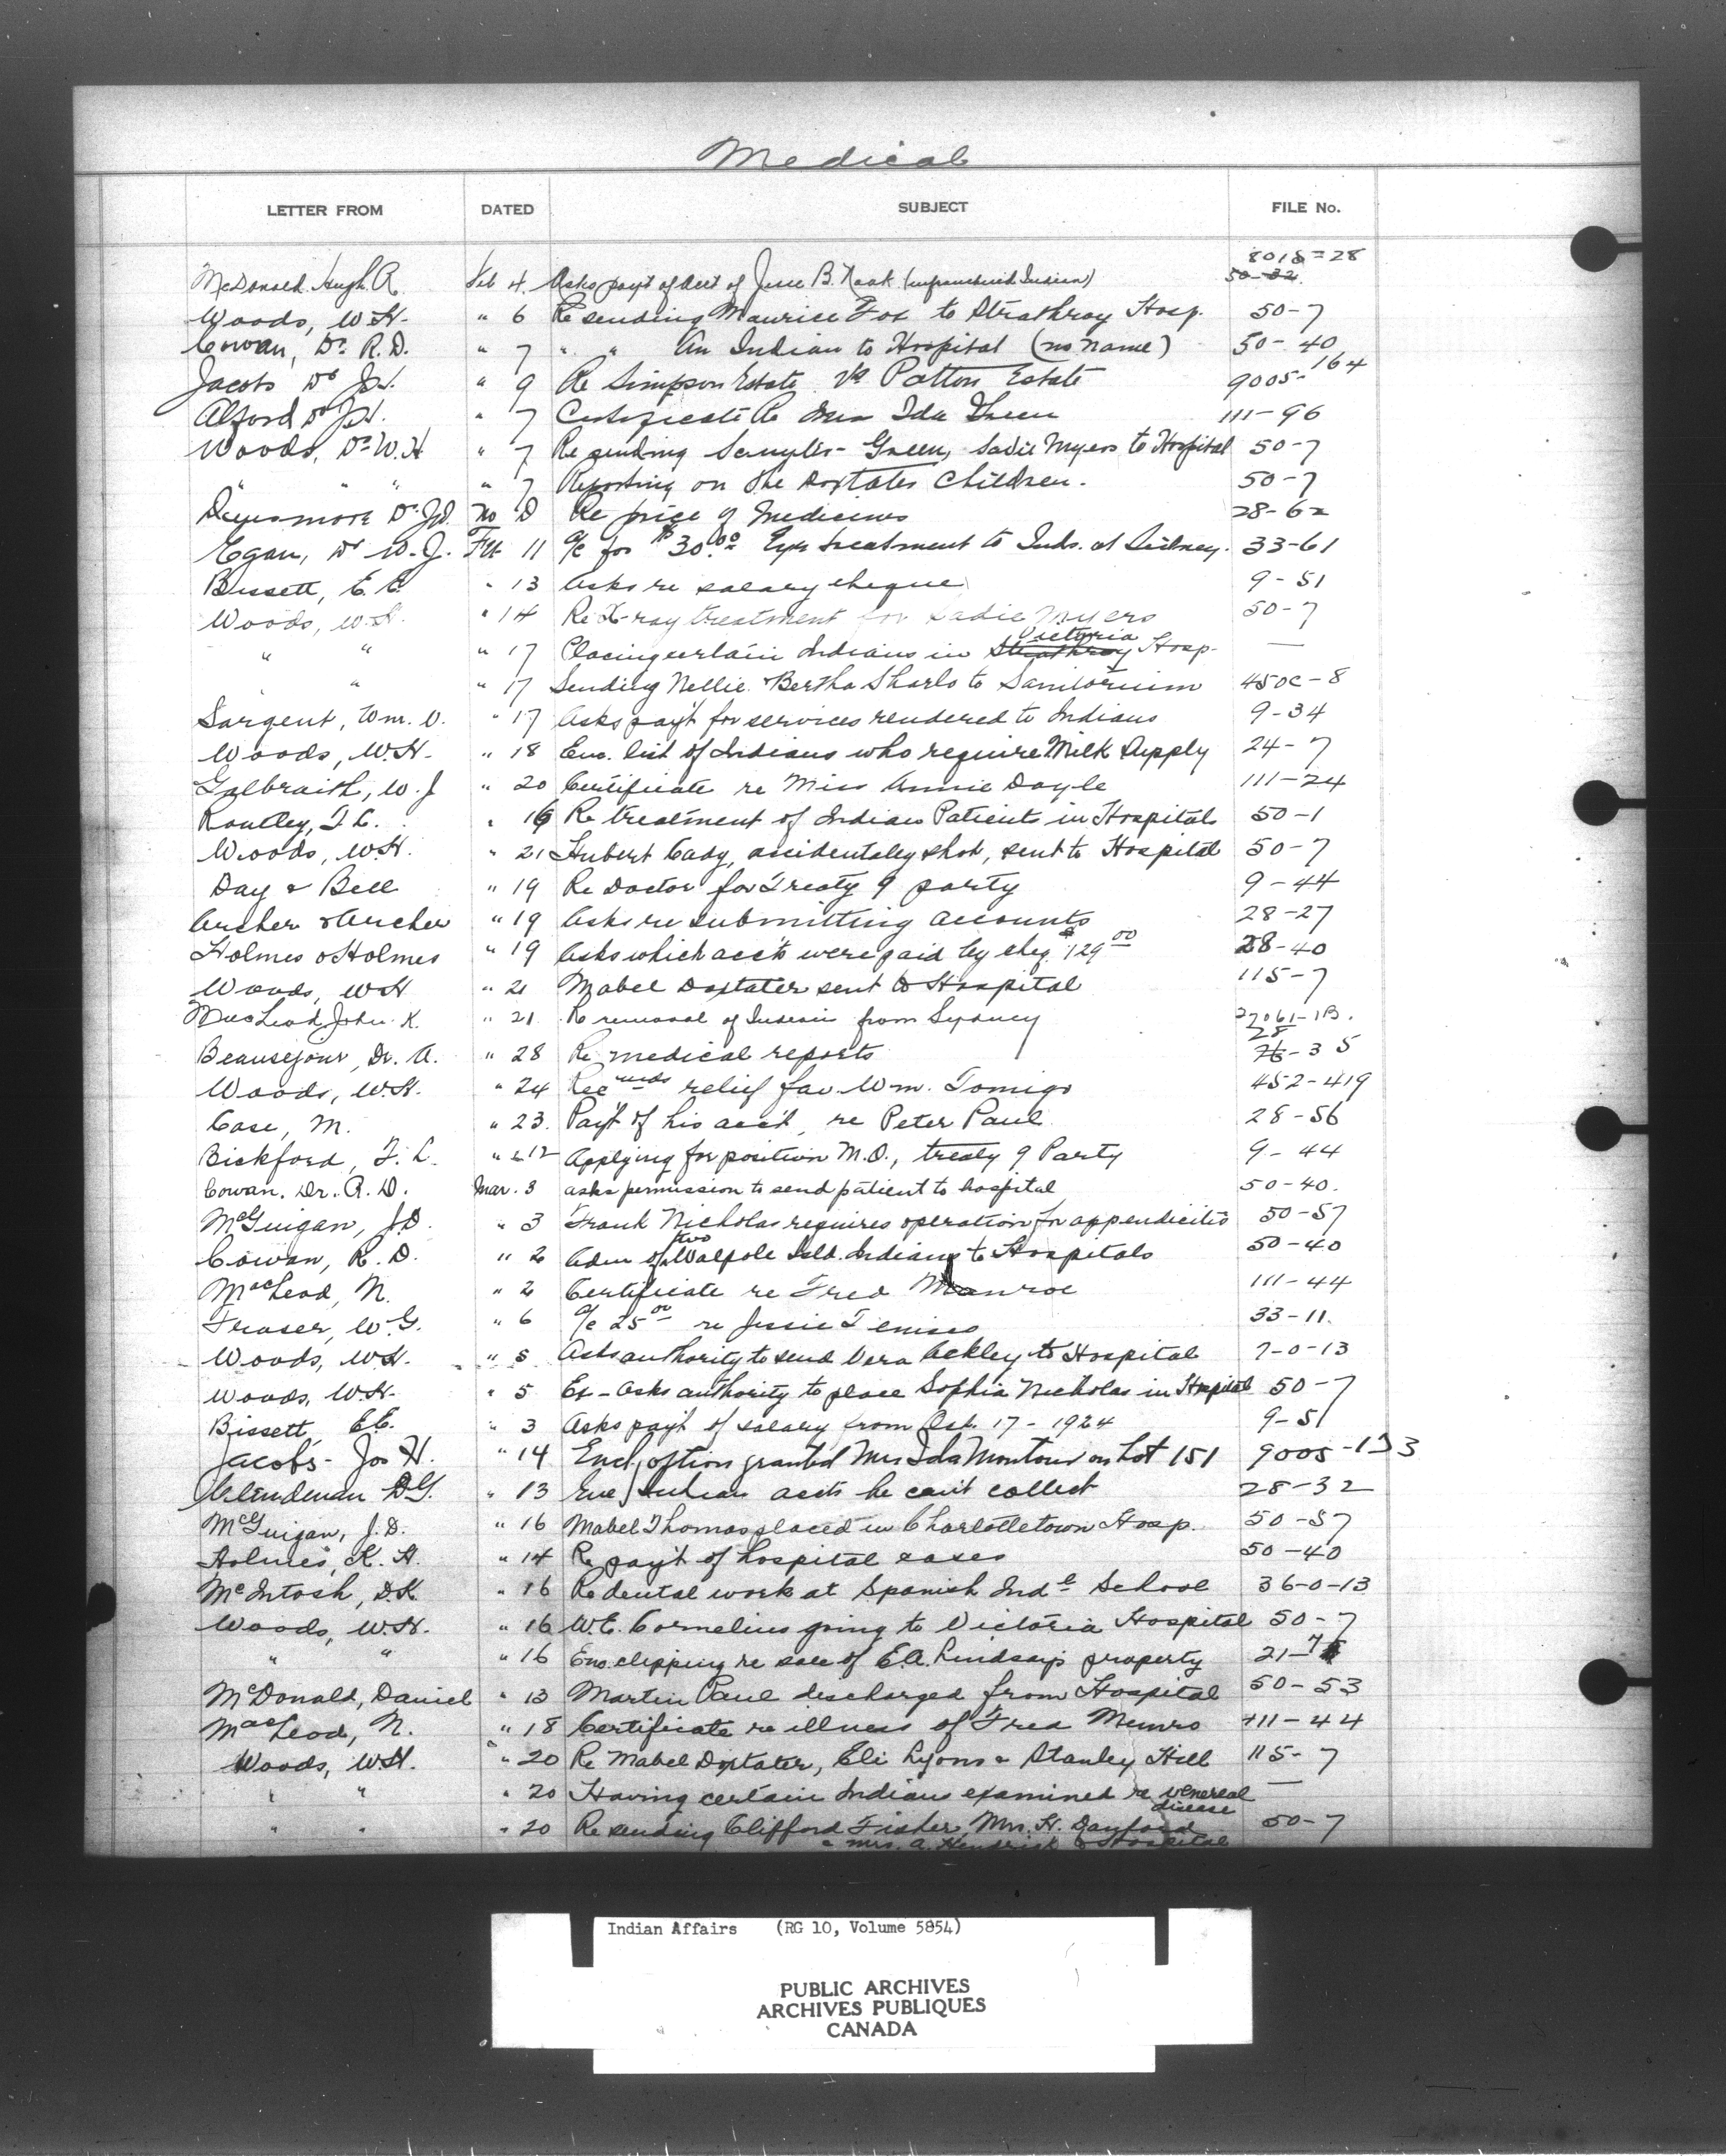 Medical
LETTER FROM DATED SUBJECT FILE No.
8018-28
McDonald Hugh A. Feb 4. Asks pay't of acct of Jesse B. (enfranchised Indian) 50-32
Woods, W.H. " 6 Re sending Maurice Fox to Strathroy Hosp. 50-7
Cowan, Dr R.D. " 7 " " An Indian to Hospital (no name) 50-40
Jacobs Dr J.H. " 9 Re Simpson Estate vs Patton Estate 9005-164
Alford Dr J.H. " 7 Certificate Re Mrs Ida Green 111-96
Woods, Dr W.H " 7 Re sending Green, Sadie Myers to Hospital 50-7
" " " " 7 Reporting on the Doxtater Children. 50-7
Dinsmore Dr No D Re price of Medicines 28-62
Egan, Dr W.J. Feb 11 a/c for $30.00 Eye treatment to Inds. at Sidney. 33-61
Bissett, E.E. " 13 Asks re salary cheque 9-51
Woods, W.H. " 14 Re X-ray treatment for Sadie Myers 50-7
Victoria
" " " 17 Placing certain Indians in Strathroy Hosp. —
" " 17 Sending Nellie & Bertha Sharlo to Sanitorium 450c-8
Sargent, Wm. V. " 17 Asks pay't for services rendered to Indians 9-34
Woods, W.H. " 18 Enc. list of Indians who require Milk Supply 24-7
Galbraith, W.J " 20 Certificate re Miss Annie Doyle 111-24
Routley, T.C. " 16 Re treatment of Indian Patients in Hospitals 50-1
Woods, W.H. " 21 Hubert Cady, accidentaley shot, sent to Hospital 50-7
Day & Bell " 19 Re Doctor for Treaty 9 party 9-44
Archer & Archer " 19 Asks re submitting accounts 28-27
Holmes & Holmes " 19 Asks which acc'ts were paid by cheq. $129.00 28-40
Woods, W.H " 21 Mabel Doxtater sent to Hospital 115-7
MacLeod John K. " 21 Re removal of Indians from Sydney 27061-1B.
28
Beausejour, Dr. A. " 28 Re medical reports 76-35
Woods, W.H. " 24 Recmds relief for Wm. Tomigo 452-419
Case, M. " 23. Pay't of his acc't, re Peter Paul 28-56
Bickford, F. L. " 12 Applying for position M.O., treaty 9 Party 9-44
Cowan, Dr. R. D. Mar. 3 asks permission to send patient to hospital 50-40.
McGuigan, J.D. " 3 Frank Nicholas requires operation for appendicitis 50-57
two
Cowan, R. D. " 2 Adm of Walpole Isld. Indians to Hospitals 50-40
MacLeod, N. " 2 Certificate re Fred Munroe 111-44
Fraser, W.G. " 6 a/c 25.00 re Jessie Tenisco 33-11.
Woods, W.H. " 5 Asks authority to send Vera Ackley to Hospital 7-0-13
Woods, W.H. " 5 Asks authority to place Sophia Nicholas in Hospital 50-7
Bissett, E.E. " 3 Asks pay't of salary from Oct. 17-1924 9-51
Jacobs- Jos H. " 14 Encl option granted Mrs Ida Montour on Lot 151 9005-133
Clendenan D.G. " 13 Enc Indian accts he can't collect 28-32
McGuigan, J.D. " 16 Mabel Thomas placed in Charlottetown Hosp. 50-57
Holmes, K. H. " 14 Re pay't of hospital cases 50-40
McIntosh, D.K. " 16 Re dental work at Spanish Indl School 36-0-13
Woods, W.H. " 16 W.E. Cornelius going to Victoria Hospital 50-7
" " " 16 Enc. clipping re sale of E.A. Lindsay's property 21-7
McDonald, Daniel " 13 Martin Paul discharged from Hospital 50-53
MacLeod, N. " 18 Certificate re illness of Fred Munro 111-44
Woods, W.H. " 20 Re Mabel Doxtater, Eli Lyons & Stanley Hill 115-7
" " " 20 Having certain Indians examined re venereal —
disease
" " " 20 Re sending Clifford Fisher, Mrs. H. Danford 50-7
& Mrs. A. Hendrick to Hospital
Indian Affairs (RG 10, Volume 5854)
PUBLIC ARCHIVES
ARCHIVES PUBLIQUES
CANADA